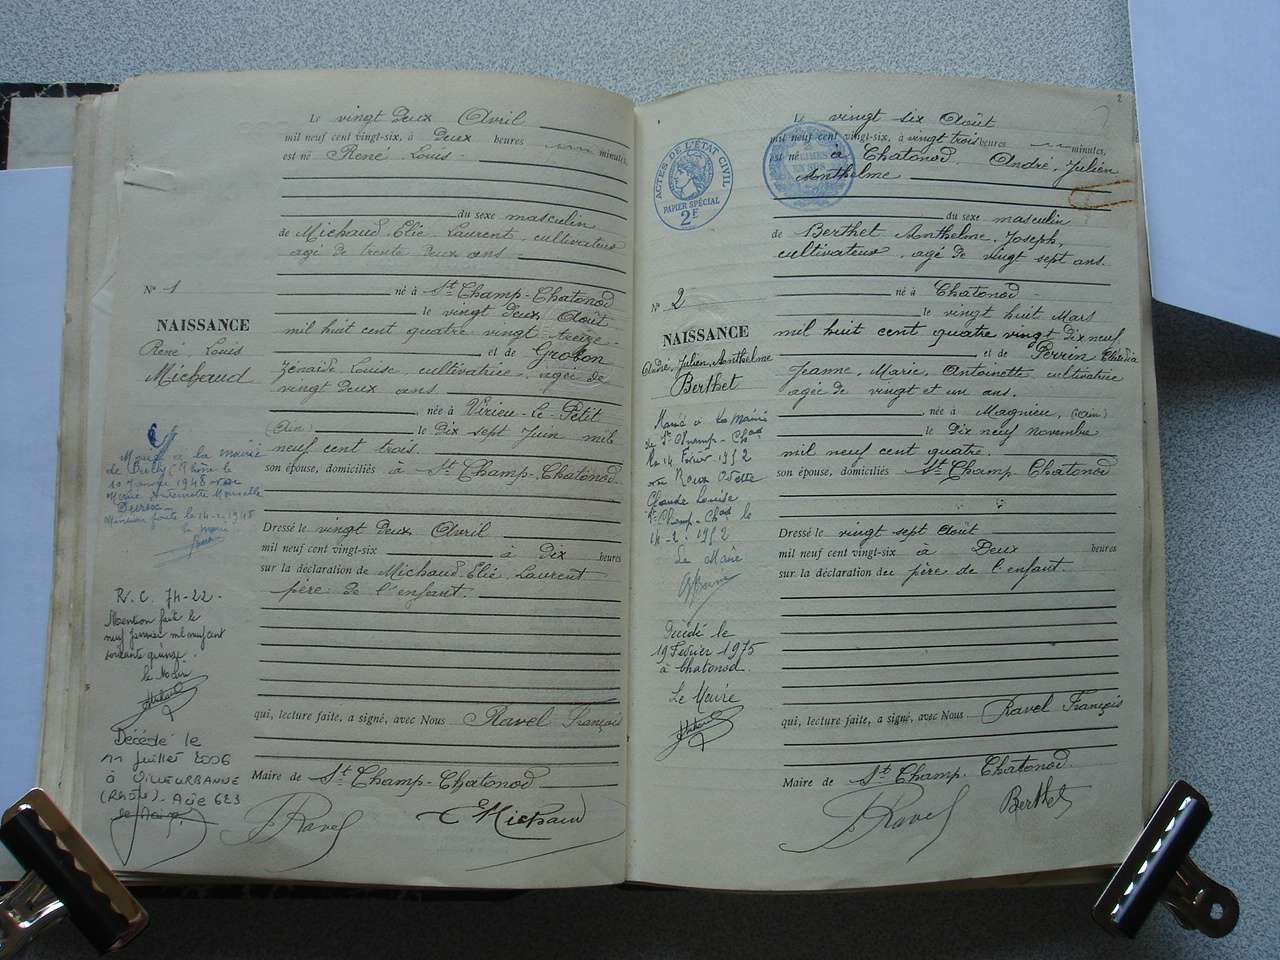 Le vingt Deux Avril
mil neuf cent vingt-six, à Deux heures minutes,
est né René Louis
du sexe masculin
de Michaud Elie Laurent, cultivateur
agé de trente deux ans
né à St Champ-Chatonod
le vingt Deux Août
mil huit cent quatre vingt treize
et de Grobon
Zénaïde Louise, cultivatrice, agée de
vingt Deux ans
née à Virieu-le-Petit
(Ain) le Dix sept Juin mil
neuf cent trois.
son épouse, domiciliés à St Champ-Chatonod
Dressé le vingt Deux Avril
mil neuf cent vingt-six à Dix heures
sur la déclaration de Michaud Elie Laurent
père de l'enfant.
qui, lecture faite, a signé, avec Nous Ravel François
Maire de St Champ-Chatonod
Ravel EMichaud
N° 1
NAISSANCE
René, Louis
Michaud
6
Marié à la mairie
de (Rhône) le
10 Janvier 1948 avec
Marie Antoinette
Mention faite le 14-2-1948
le maire
R.C. 74-22.
Mention fait le
neuf Janvier mil neuf cent
soixante quinze.
Décédé le
11 juillet 2006
à VILLEURBANNE
(Rhône). Acte 623
2
Le vingt six Août
mil neuf cent vingt-six, à vingt trois heures minutes,
est né à Chatonod André, Julien
Anthelme
du sexe masculin
de Berthet Anthelme, Joseph,
cultivateur, agé de vingt sept ans.
né à Chatonod
le vingt huit Mars
mil huit cent quatre vingt Dix neuf
et de Perrin
Jeanne, Marie, Antoinette cultivatrice
agée de vingt et un ans.
née à Magnieu, (Ain)
le Dix neuf novembre
mil neuf cent quatre.
son épouse, domiciliés St Champ Chatonod
Dressé le vingt sept Août
mil neuf cent vingt-six à Deux heures
sur la déclaration du père de l'enfant.
qui, lecture faite, a signé, avec Nous Ravel François
Maire de St Champ-Chatonod
Ravel Berthet
ACTES DE L'ÉTAT CIVIL
PAPIER SPÉCIAL
2F
N° 2
NAISSANCE
André, Julien, Anthelme
Berthet
Marié à la Mairie
de St Champ-Chad
le 14 Février 1952
avec Roux Odette
Claude Louise
St Champ-Chad le
14-2-1952
Le Maire
Décédé le
19 Février 1975
à Chatonod.
Le Maire